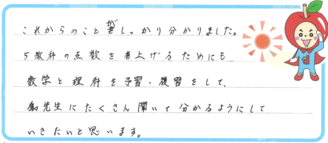 これからのことがしっかり分かりました。
5教科の点数を上げるためにも
数学と理科を予習・復習をして、
先生にたくさん聞いて分かるようにして
いきたいと思います。